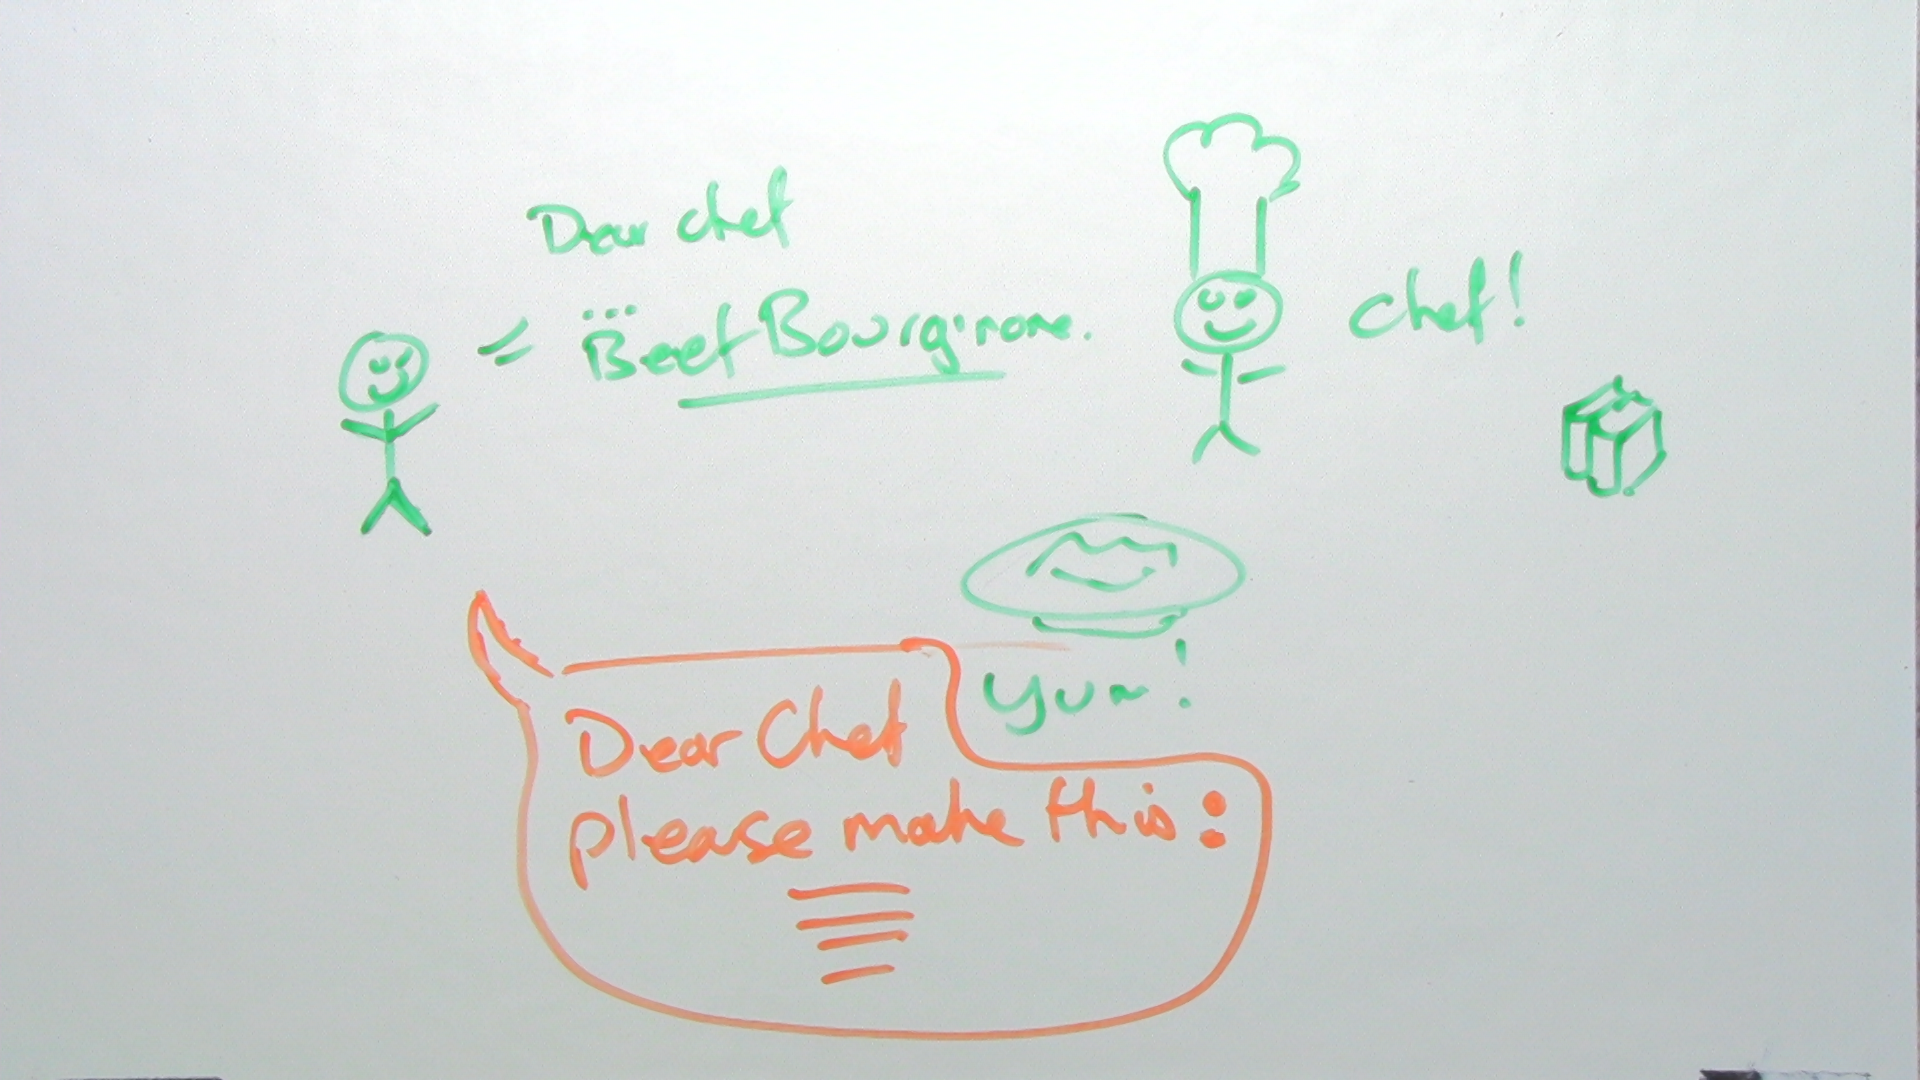 Dear chef
... Beef Bourginone.
Chef!
Yum!
Dear Chef
please make this: